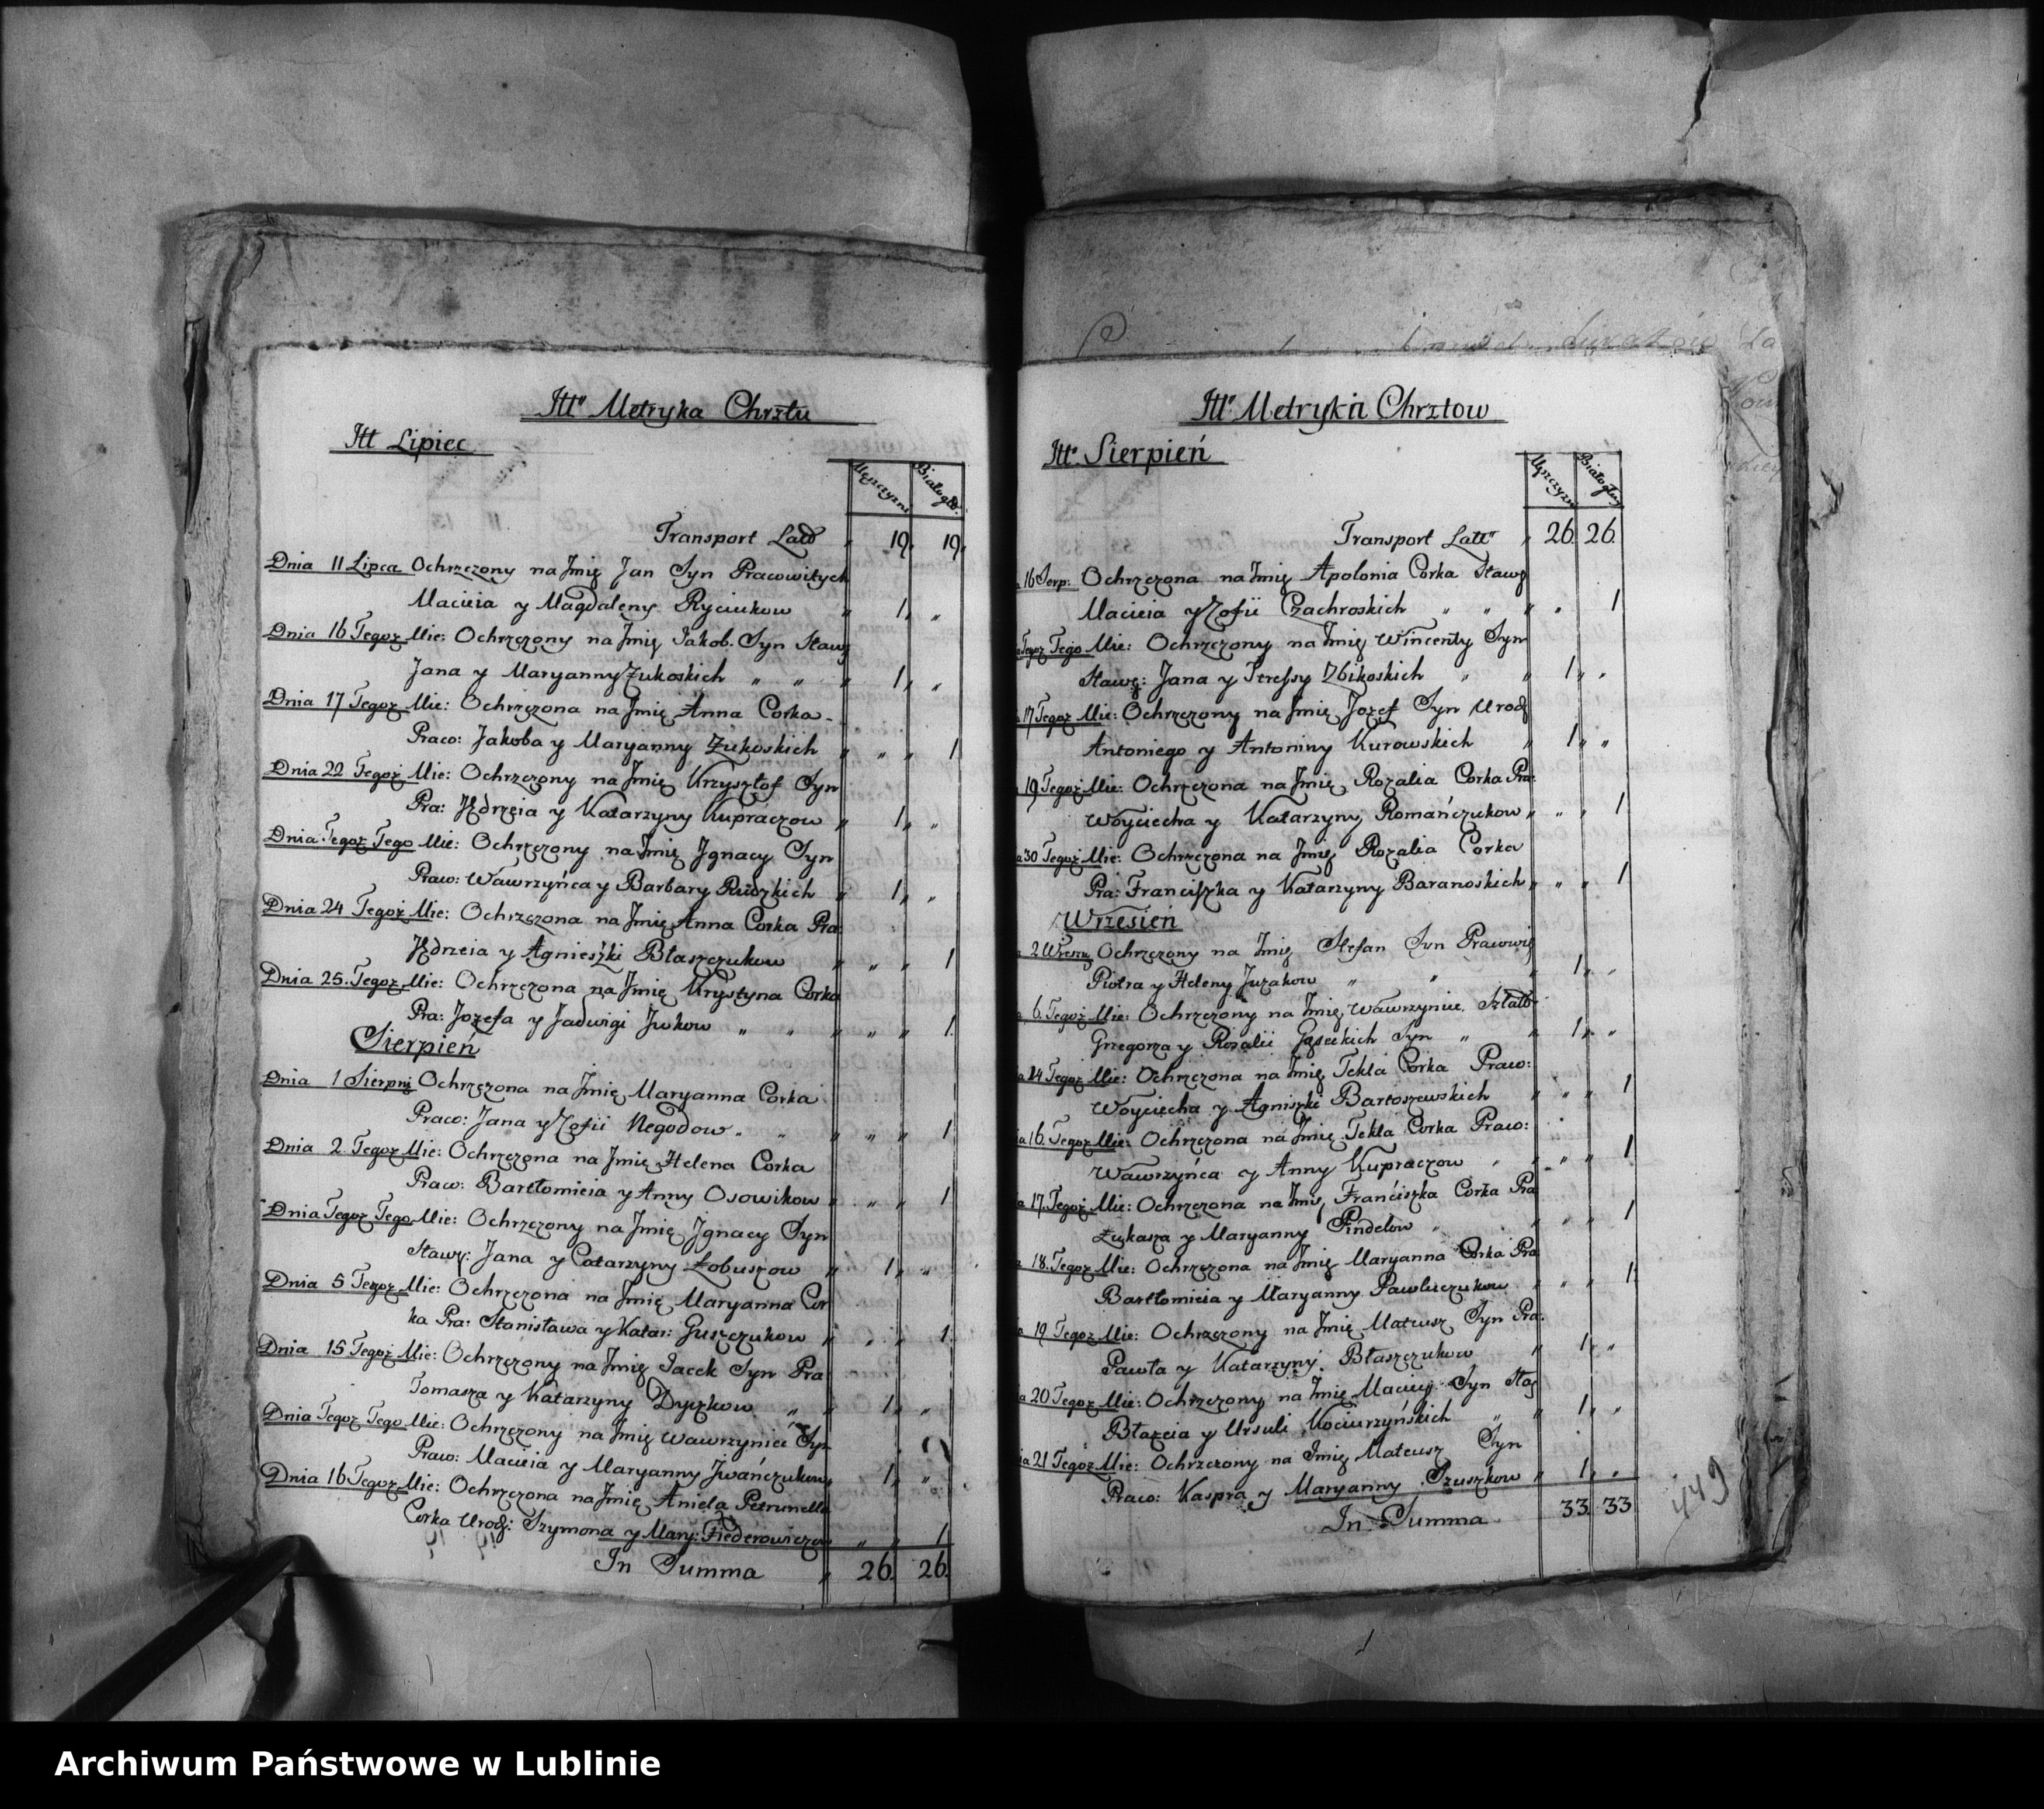 Itt° Metryka Chrztu
Itt Lipiec
Męszczyzni Białogło.
Transport Latt „ 19. 19.
Dnia 11 Lipca Ochrzczony na Jmię Jan Syn Pracowitych
Macieia y Magdaleny Ryciukow „ 1„ „
Dnia 16 Tegoż Mie: Ochrzczony na Jmię Jakob. Syn Sław
Jana y Maryanny Zukoskich „ „ „ 1„ „
Dnia 17 Tegoż Mie: Ochrzczona na Jmię Anna Corka
Praco: Jakoba y Maryanny Zukoskich „ „ „ 1
Dnia 22 Tegoż Mie: Ochrzczony na Jmię Krzysztof Syn
Pra: Jędrzeia y Katarzyny Kupraczow „ 1„ „
Dnia Tegoż Tego Mie: Ochrzczony na Jmię Jgnacy Syn
Praw: Wawrzyńca y Barbary Rudzkich „ 1„ „
Dnia 24 Tegoż Mie: Ochrzczona na Jmię Anna Corka Pra
Jędrzeia y Agnieszki Błaszczukow „ „ „ 1
Dnia 25. Tegoż Mie: Ochrzczona na Jmię Krystyna Corka
Pra: Jozefa y Jadwigi Jwkow „ „ „ „ „ 1.
Sierpień
Dnia 1 Sierpnia Ochrzczona na Jmię Maryanna Corka
Praco: Jana y Zofii Negodow „ „ „ „ „ 1
Dnia 2 Tegoż Mie: Ochrzczona na Jmię Helena Corka
Praw: Bartłomieia y Anny Osowikow „ „ „ 1
Dnia Tegoż Tego Mie: Ochrzczony na Jmię Jgnacy Syn
Sławę: Jana y Catarzyny Łobuszow „ 1„ „
Dnia 5 Tegoż Mie: Ochrzczona na Jmię Maryanna Cor
ka Pra: Stanisława y Katar: Guszczukow „ „ „ 1.
Dnia 15 Tegoż Mie: Ochrzczony na Jmię Jacek Syn Pra
Tomasza y Katarzyny Dyczkow „ „ 1„ „
Dnia Tegoż Tego Mie: Ochrzczony na Jmię Wawrzyniec Syn
Praw: Macieia y Maryanny Jwańczukow 1„ „
Dnia 16 Tegoż Mie: Ochrzczona na Jmię Aniela Petrunella
Corka Urodz: Szymona y Mary: Fiederowiczow „ „ 1
In Summa „ 26. 26.
Itt° Metryka Chrztow
Itt°. Sierpień
Męszczyzni Białogłowy
Transport Latt° „ 26. 26.
16 Serp: Ochrzczona na Jmię Apolonia Corka Sławę
Macieia y Zofii Czachroskich „ „ „ „ 1
Tegoż Tego Mie: Ochrzczony na Jmię Wincenty Syn
Sławę: Jana y Teressy Zbikoskich „ „ 1„ „
17 Tegoż Mie: Ochrzczony na Jmię Jozef Syn Urodz
Antoniego y Antoniny Kurowskich „ 1„ „
19 Tegoż Mie: Ochrzczona na Jmię Rozalia Corka Pra:
Woyciecha y Katarzyny Romańczukow „ „ „ 1
30 Tegoż Mie: Ochrzczona na Jmię Rozalia Corka
Pra: Franciszka y Katarzyny Baranoskich „ „ „ 1
Wrzesień
2 Wrześ Ochrzczony na Jmię Stefan Syn Pracowi
Piotra y Heleny Juzakow „ „ „ 1„ „
6. Tegoż Mie: Ochrzczony na Jmię Wawrzyniec Szlath
Grzegorza y Rozalii Gąseckich Syn „ „ 1„ „
14 Tegoż Mie: Ochrzczona na Jmię Tekla Corka Praw:
Woyciecha y Agniszki Bartoszewskich „ „ „ 1
16. Tegoż Mie: Ochrzczona na Jmię Tekla Corka Praw:
Wawrzyńca y Anny Kupraczow „ „ „ „ 1
17. Tegoż Mie: Ochrzczona na Jmię Franciszka Corka Pra
Łukasza y Maryanny Pindelow „ „ „ „ 1
18. Tegoż Mie: Ochrzczona na Jmię Maryanna Corka Pra
Bartłomieia y Maryanny Pawluczukow „ „ „ 1
19 Tegoż Mie: Ochrzczony na Jmię Mateusz Syn Pra:
Pawła y Katarzyny Błaszczukow „ 1„ „
20 Tegoż Mie: Ochrzczony na Jmię Maciey Syn
Błażeia y Ursuli Kociurzyńskich „ „ 1„ „
21 Tegoż Mie: Ochrzczony na Jmię Mateusz Syn
Praco: Kaspra y Maryanny Szuszkow „ 1„ „
In Summa 33. 33
449
Archiwum Państwowe w Lublinie